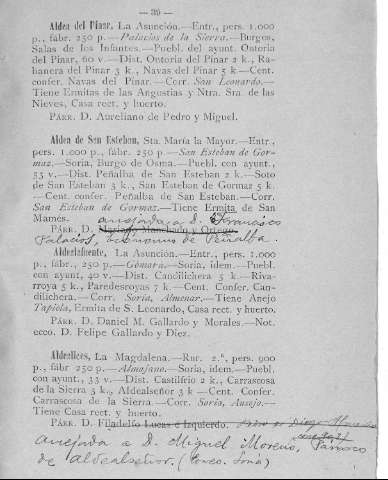 — 36 —
Aldea del Pinar, La Asunción.—Entr., pers. 1.000
p., fábr. 250 p.—Palacios de la Sierra.—Burgos,
Salas de los Infantes.—Puebl. del ayunt. Ontoria
del Pinar, 60 v.—Dist. Ontoria del Pinar 2 k., Ra-
banera del Pinar 3 k., Navas del Pinar 5 k—Cent.
confer. Navas del Pinar.—Corr. San Leonardo.—
Tiene Ermitas de las Angustias y Ntra. Sra. de las
Nieves, Casa rect. y huerto.
PÁRR. D. Aureliano de Pedro y Miguel.
Aldea de San Esteban, Sta. María la Mayor.—Entr.,
pers. 1.000 p., fábr. 250 p.—San Esteban de Gor-
maz.—Soria, Burgo de Osma.—Puebl. con ayunt.,
33 v.—Dist. Peñalba de San Esteban 2 k.—Soto
de San Esteban 3 k., San Esteban de Gormaz 5 k.
—Cent. confer. Peñalba de San Esteban.—Corr.
San Esteban de Gormaz.—Tiene Ermita de San
Mamés. anejada a D. Francisco
PÁRR. D. Mariano Manchado y Ortego.
Palacios, Ecónomo de Peñalba.
Aldealafuente, La Asunción.—Entr., pers. 1.000
p., fábr., 250 p.—Gómara.—Soria, idem.—Puebl.
con ayunt, 40 v.—Dist. Candilichera 5 k.—Riva-
rroya 5 k., Paredesroyas 7 k.—Cent. Confer. Can-
dilichera.—Corr. Soria, Almenar.—Tiene Anejo
Tapiela, Ermita de S. Leonardo, Casa rect. y huerto.
PÁRR. D. Daniel M. Gallardo y Morales.—Not.
ecco. D. Felipe Gallardo y Diez.
Aldealices, La Magdalena.—Rur. 2.ª, pers. 900
p., fábr. 250 p.—Almajano.—Soria, idem.—Puebl.
con ayunt., 33 v.—Dist. Castilfrío 2 k., Carrascosa
de la Sierra 3 k., Aldealseñor 3 k—Cent. Confer.
Carrascosa de la Sierra.—Corr. Soria, Ausejo.—
Tiene Casa rect. y huerto.
PÁRR. D. Filadelfo Lucas e Izquierdo.
anejada a D. Miguel Moreno, Párroco
de Aldealseñor. (Enco. Soria)